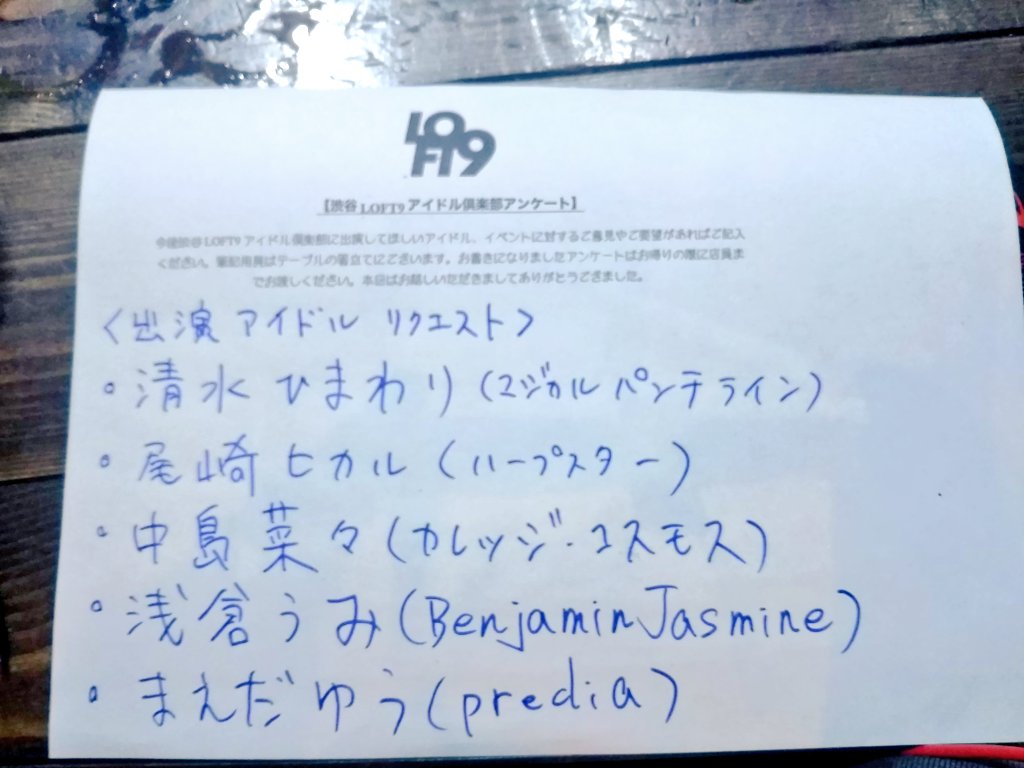 LOFT9
【渋谷LOFT9 アイドル倶楽部アンケート】
今後渋谷LOFT9 アイドル倶楽部に出演してほしいアイドル、イベントに対するご意見やご要望があればご記入
ください。筆記用具はテーブルの箸立てにございます。お書きになりましたアンケートはお帰りの際に店員ま
でお渡しください。本日はお越しいただきましてありがとうございました。
<出演アイドル リクエスト>
・清水ひまわり(マジカルパンテライン)
・尾崎ヒカル(ハープスター)
・中島菜々(カレッジ・コスモス)
・浅倉うみ(BenjaminJasmine)
・まえだゆう(predia)